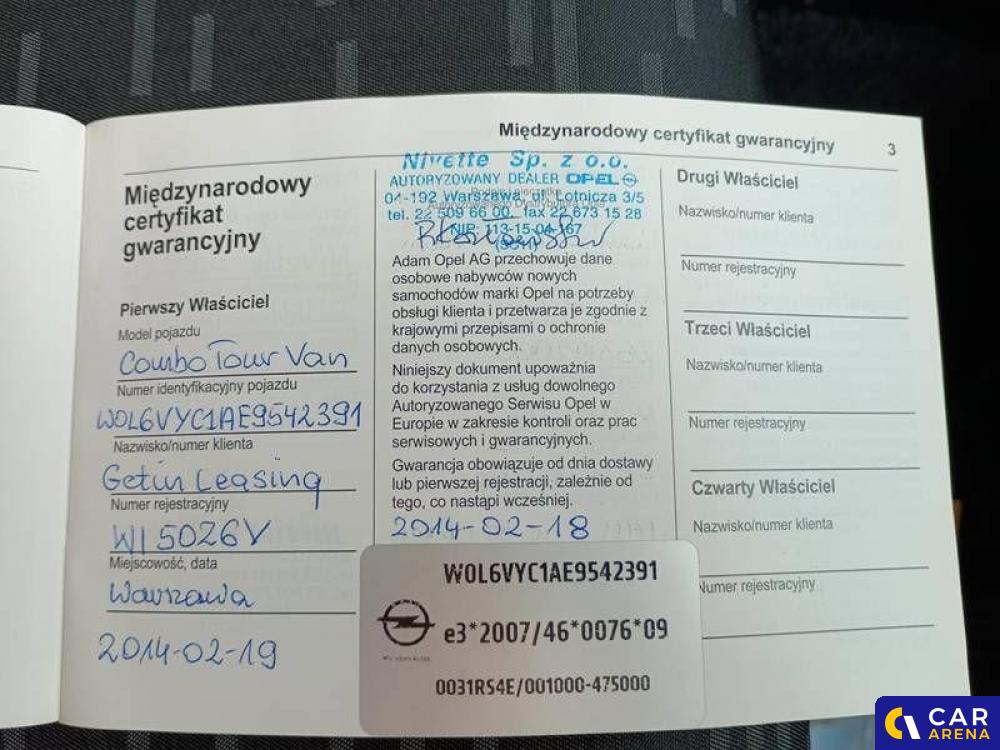 Międzynarodowy certyfikat gwarancyjny
3
Międzynarodowy
certyfikat
gwarancyjny
Pierwszy Właściciel
Model pojazdu
Combo Tour Van
Numer identyfikacyjny pojazdu
W0L6VYC1AE9542391
Nazwisko/numer klienta
Getin Leasing
Numer rejestracyjny
WI 5026V
Miejscowość, data
Warszawa
2014-02-19
Nivette Sp. z o.o.
AUTORYZOWANY DEALER OPEL
04-192 Warszawa, ul. Lotnicza 3/5
tel. 22 509 66 00, fax 22 673 15 28
NIP: 113-15-04-167
Adam Opel AG przechowuje dane
osobowe nabywców nowych
samochodów marki Opel na potrzeby
obsługi klienta i przetwarza je zgodnie z
krajowymi przepisami o ochronie
danych osobowych.
Niniejszy dokument upoważnia
do korzystania z usług dowolnego
Autoryzowanego Serwisu Opel w
Europie w zakresie kontroli oraz prac
serwisowych i gwarancyjnych.
Gwarancja obowiązuje od dnia dostawy
lub pierwszej rejestracji, zależnie od
tego, co nastąpi wcześniej.
2014-02-18
W0L6VYC1AE9542391
e3*2007/46*0076*09
0031RS4E/001000-475000
Drugi Właściciel
Nazwisko/numer klienta
Numer rejestracyjny
Trzeci Właściciel
Nazwisko/numer klienta
Numer rejestracyjny
Czwarty Właściciel
Nazwisko/numer klienta
Numer rejestracyjny
CAR
ARENA